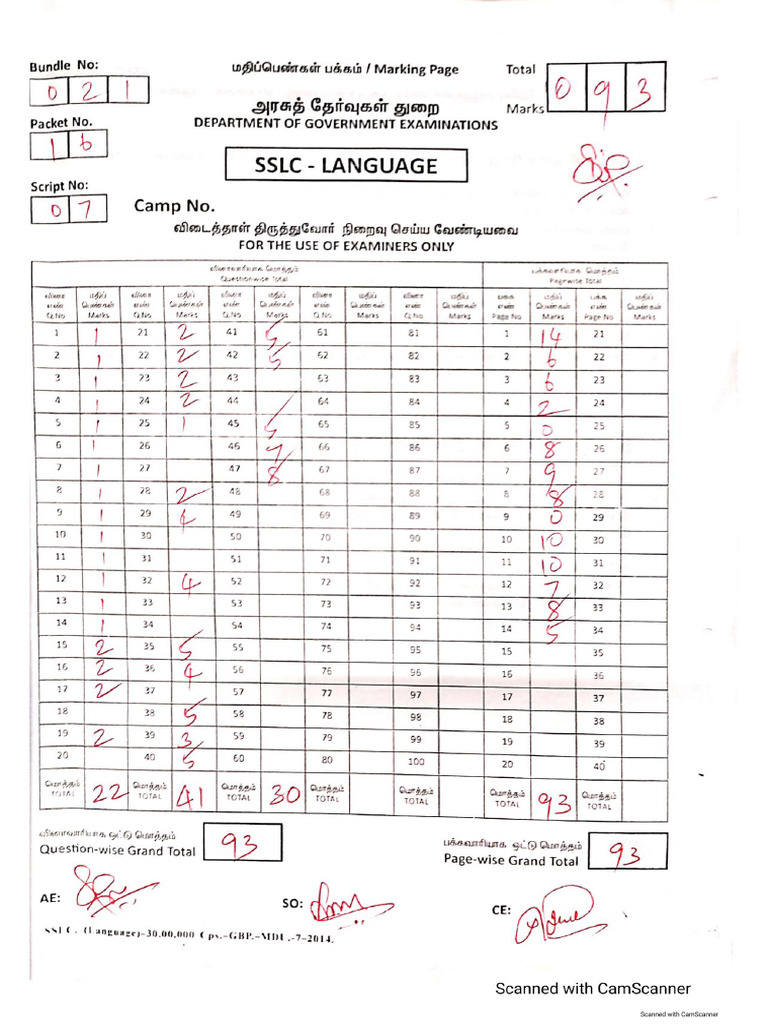 Bundle No:
0 2 1
மதிப்பெண்கள் பக்கம் / Marking Page
Total Marks
0 9 3
அரசுத் தேர்வுகள் துறை
DEPARTMENT OF GOVERNMENT EXAMINATIONS
Packet No.
1 6
SSLC - LANGUAGE
Script No:
0 7
Camp No.
விடைத்தாள் திருத்துவோர் நிறைவு செய்ய வேண்டியவை
FOR THE USE OF EXAMINERS ONLY
வினாவாரியாக மொத்தம் பக்கவாரியாக மொத்தம்
Question-wise Total Pagewise Total
வினா எண் மதிப் பெண்கள் வினா எண் மதிப் பெண்கள் வினா எண் மதிப் பெண்கள் வினா எண் மதிப் பெண்கள் வினா எண் மதிப் பெண்கள் பக்க எண் மதிப் பெண்கள் பக்க எண் மதிப் பெண்கள்
Q.No Marks Q.No Marks Q.No Marks Q.No Marks Q.No Marks Page No Marks Page No Marks
1 1 21 2 41 5 61 81 1 14 21
2 1 22 2 42 5 62 82 2 6 22
3 1 23 2 43 63 83 3 6 23
4 1 24 2 44 64 84 4 2 24
5 1 25 1 45 5 65 85 5 0 25
6 1 26 46 7 66 86 6 8 26
7 1 27 47 8 67 87 7 9 27
8 1 28 2 48 68 88 8 8 28
9 1 29 4 49 69 89 9 0 29
10 1 30 50 70 90 10 10 30
11 1 31 51 71 91 11 10 31
12 1 32 4 52 72 92 12 7 32
13 1 33 53 73 93 13 8 33
14 1 34 54 74 94 14 5 34
15 2 35 5 55 75 95 15 35
16 2 36 4 56 76 96 16 36
17 2 37 57 77 97 17 37
18 38 5 58 78 98 18 38
19 2 39 3 59 79 99 19 39
20 40 5 60 80 100 20 40
மொத்தம் மொத்தம் மொத்தம் மொத்தம் மொத்தம் மொத்தம் மொத்தம்
TOTAL 22 TOTAL 41 TOTAL 30 TOTAL TOTAL TOTAL 93 TOTAL
வினாவாரியாக ஒட்டு மொத்தம்
Question-wise Grand Total 93
பக்கவாரியாக ஒட்டு மொத்தம்
Page-wise Grand Total 93
AE: SO: CE:
SSLC. (Language)-30,00,000 Cps.-GBP.-MDU.-7-2014.
Scanned with CamScanner
Scanned with CamScanner